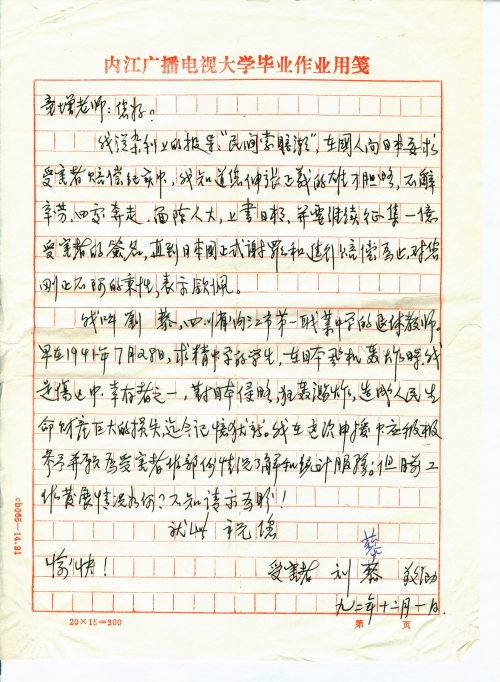 内江广播电视大学毕业作业用笺
童增老师：您好？
我从杂利上的报导："民间索赔潮"，在国人向日本要求
受害者赔偿纪实中，我知道您伸张正义的雄才胆略，不辞
辛劳、四处奔走、面陈人大，上书日相，并要继续征集一亿
受害者的签名，直到日本国正式谢罪和进行赔偿为止，对您
刚正不阿的秉性，表示钦佩。
我叫刘藜，四川省内江市第一职业中学的退休教师。
早在1941年7月28日，求精中学的学生，在日本飞机轰炸时，我
是塌上中幸存者之一，对日本侵略，狂轰滥炸，造成人民生
命财产巨大的损失迄今记忆犹新。我在这次申援中应积极
参予并愿为受害者作部份情况了解和统计服务；但胨工
作发展情况如何？不知请示至盼！
就此 祝您
愉快！
受害者 刘藜 敬启
藜
九二年十二月一日
cb065—14.91
20×15=300
第 页